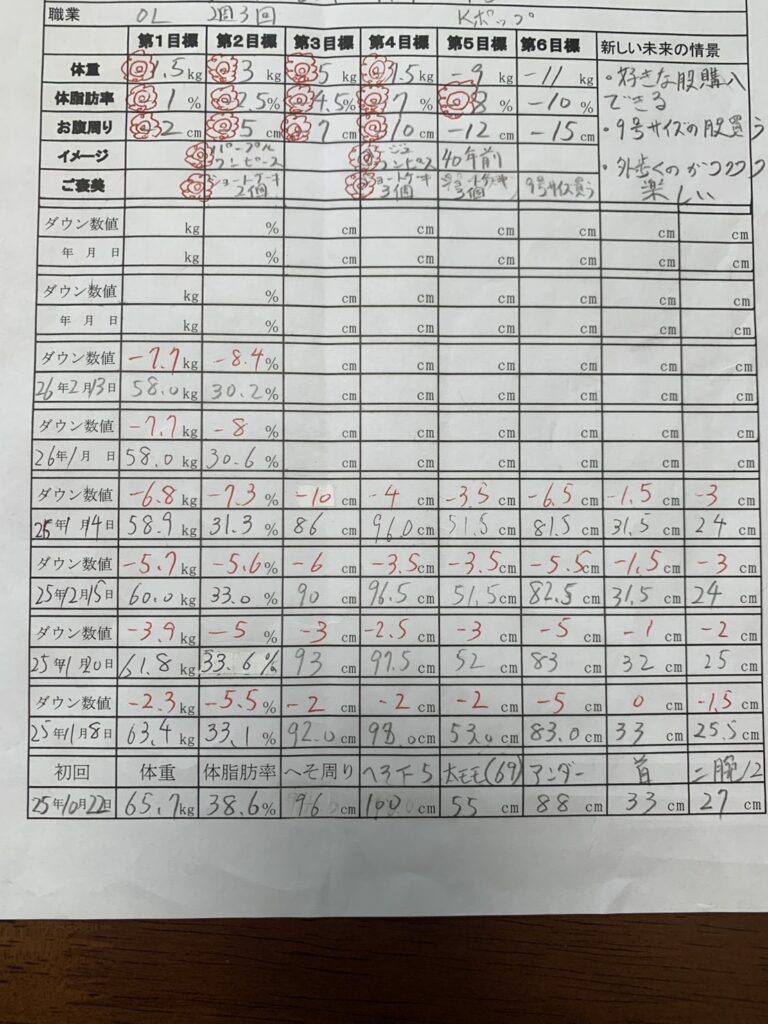 職業 OL 週3回 Kポップ
第1目標 第2目標 第3目標 第4目標 第5目標 第6目標 新しい未来の情景
体重 1.5kg 3 kg 5 kg 7.5kg -9 kg -11 kg ・好きな服購入
体脂肪率 1 % 2.5% 4.5% 7 % 8 % -10 % できる
お腹周り 2 cm 5 cm 7 cm 10 cm -12 cm -15 cm ・9号サイズの服買う
イメージ パープルワンピース 40年前 ・外歩くのがワクワク
ご褒美 ショートケーキ2個 ショートケーキ3個 ショートケーキ3個 9号サイズ買う 楽しい
ダウン数値 kg % cm cm cm cm cm cm
年 月 日 kg % cm cm cm cm cm cm
ダウン数値 kg % cm cm cm cm cm cm
年 月 日 kg % cm cm cm cm cm cm
ダウン数値 -7.7kg -8.4% cm cm cm cm cm cm
26年2月13日 58.0kg 30.2% cm cm cm cm cm cm
ダウン数値 -7.7kg -8 % cm cm cm cm cm cm
26年1月 日 58.0kg 30.6% cm cm cm cm cm cm
ダウン数値 -6.8kg -7.3% -10 cm -4 cm -3.5cm -6.5cm -1.5cm -3 cm
1月4日 58.9kg 31.3% 86 cm 96.0cm 51.5cm 81.5cm 31.5cm 24 cm
ダウン数値 -5.7kg -5.6% -6 cm -3.5cm -3.5cm -5.5cm -1.5cm -3 cm
25年12月15日 60.0kg 33.0% 90 cm 96.5cm 51.5cm 82.5cm 31.5cm 24 cm
ダウン数値 -3.9kg -5 % -3 cm -2.5cm -3 cm -5 cm -1 cm -2 cm
25年11月20日 61.8kg 33.6% 93 cm 97.5cm 52 cm 83 cm 32 cm 25 cm
ダウン数値 -2.3kg -5.5% -2 cm -2 cm -2 cm -5 cm 0 cm -1.5cm
25年11月8日 63.4kg 33.1% 92.0cm 98.0cm 53.0cm 83.0cm 33 cm 25.5cm
初回 体重 体脂肪率 へそ周り へそ下5 太モモ(69) アンダー 首 二腕12
25年10月22日 65.7kg 38.6% 96 cm 100 cm 55 cm 88 cm 33 cm 27 cm